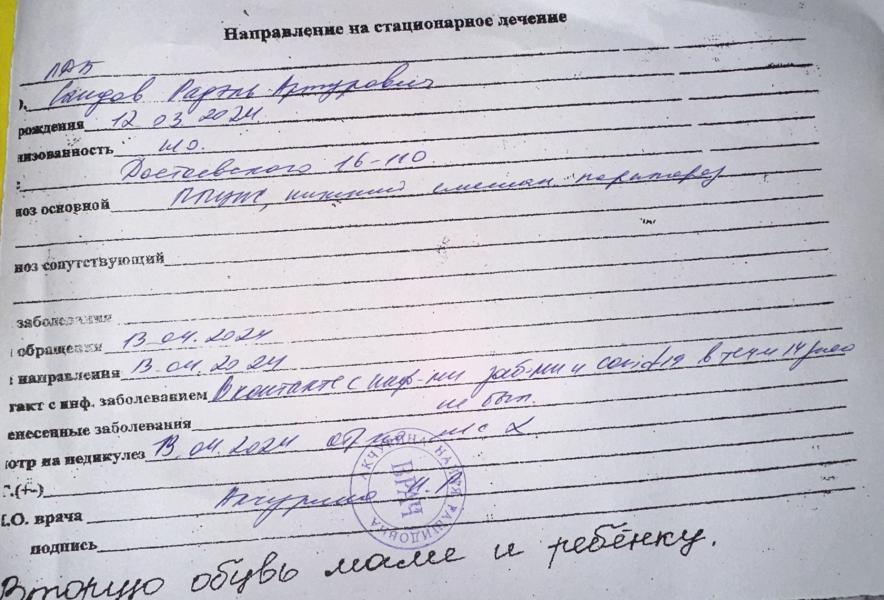 Направление на стационарное лечение
Саидов Артурович
рождения 12 03 2024
изованность н/о.
Достоевского 16-110
ноз основной ППЦНС, нижний парапарез
ноз сопутствующий
заболевания
обращения 13.04.2024
направления 13.04.2024
такт с инф. заболеванием В контакте с инф-ми заб-ми и covid19 в теч-и 14 дней
енесенные заболевания не был.
отр на педикулез 13.04.2024
.(+-)
.О. врача Акчурина Н.Р
ВРАЧ
АКЧУРИНА НАИЛЯ РАШИДОВНА
подпись
Вторую обувь маме и ребёнку.